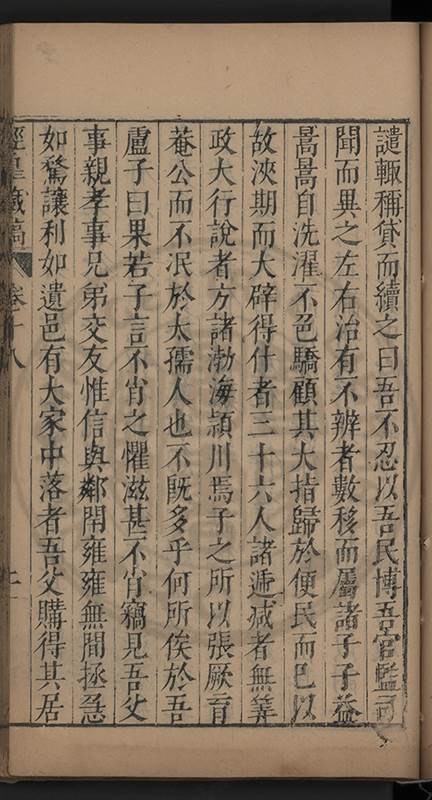 譴輒稱貸而續之曰吾不忍以吾民博吾官鹺司
聞而異之左右治有不辨者數移而屬諸子子益
暠暠自洗濯不色驕顧其大指歸於便民而已以
故浹期而大辟得什者三十六人諸遁减者無筭
政大行說者方諸渤海潁川焉子之所以張厥育
菴公而不泯於太孺人也不既多乎何所俟於吾
盧子曰果若子言不肖之懼滋甚不肖竊見吾父
事親孝事兄弟交友惟信與鄰閈雍雍無間拯急
如騖讓利如遺邑有大家中落者吾父購得其居
經皇藏稿 卷十八 上